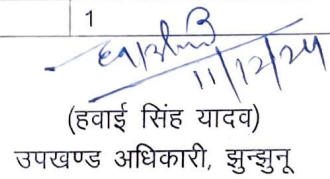 1
11/12/24
(हवाई सिंह यादव)
उपखण्ड अधिकारी, झुन्झुनू